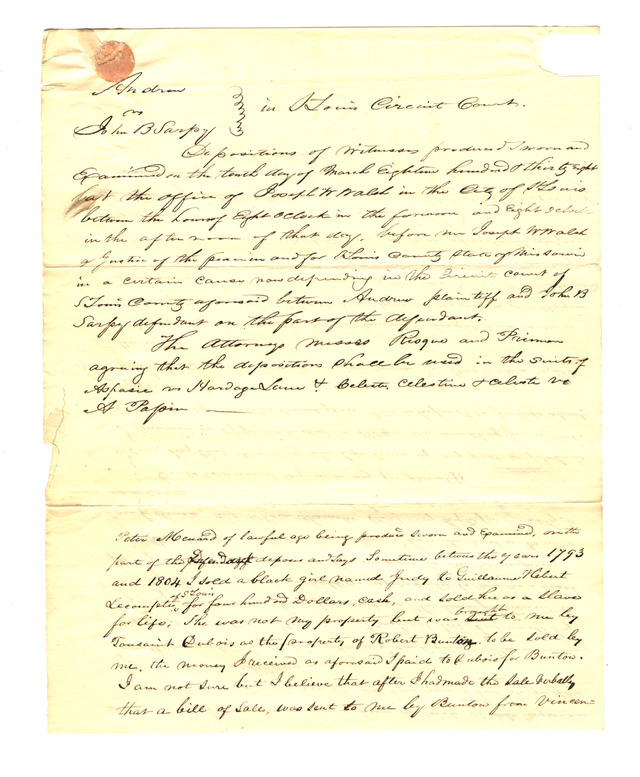 Andrew
vs
John B Sarpy
in St Louis Circuit Court.
Depositions of Witnesses produced sworn and
Examined on the tenth day of March Eighteen hundred & thirty Eight
at the office of Joseph W Walsh in the City of St Louis
between the hours of Eight O Clock in the forenoon and Eight O Clock
in the afternoon of that day, before me Joseph W Walsh
a Justice of the peace in and for St Louis County State of Missouri
in a certain cause now depending in the Circuit Court of
St Louis County aforesaid between Andrew plaintiff and John B
Sarpy defendant on the part of the defendant.
The Attorneys messes Risque and Primm
agreeing that the depositions shall be used in the suits of
Aspasie vs Hardage Lane & Celeste, Celestine & Celeste vs
A Papin
Peter Menard of lawful age being produce sworn and examined, on the
part of the deposes and says Sometime between the years 1793
and 1804 I sold a black girl named Judy to Guillaume Hebert
Lecompte, St Louis for four hundred Dollars, cash, and sold her as a Slave
for life; She was not my property but was brought to me by
Toussaint Dubois as the property of Robert Buntow to be sold by
me, the money I received as aforesaid I paid to Dubois for Buntow.
I am not sure but I believe that after I had made the sale verbally
that a bill of sale, was sent to me by Buntow from Vincen=